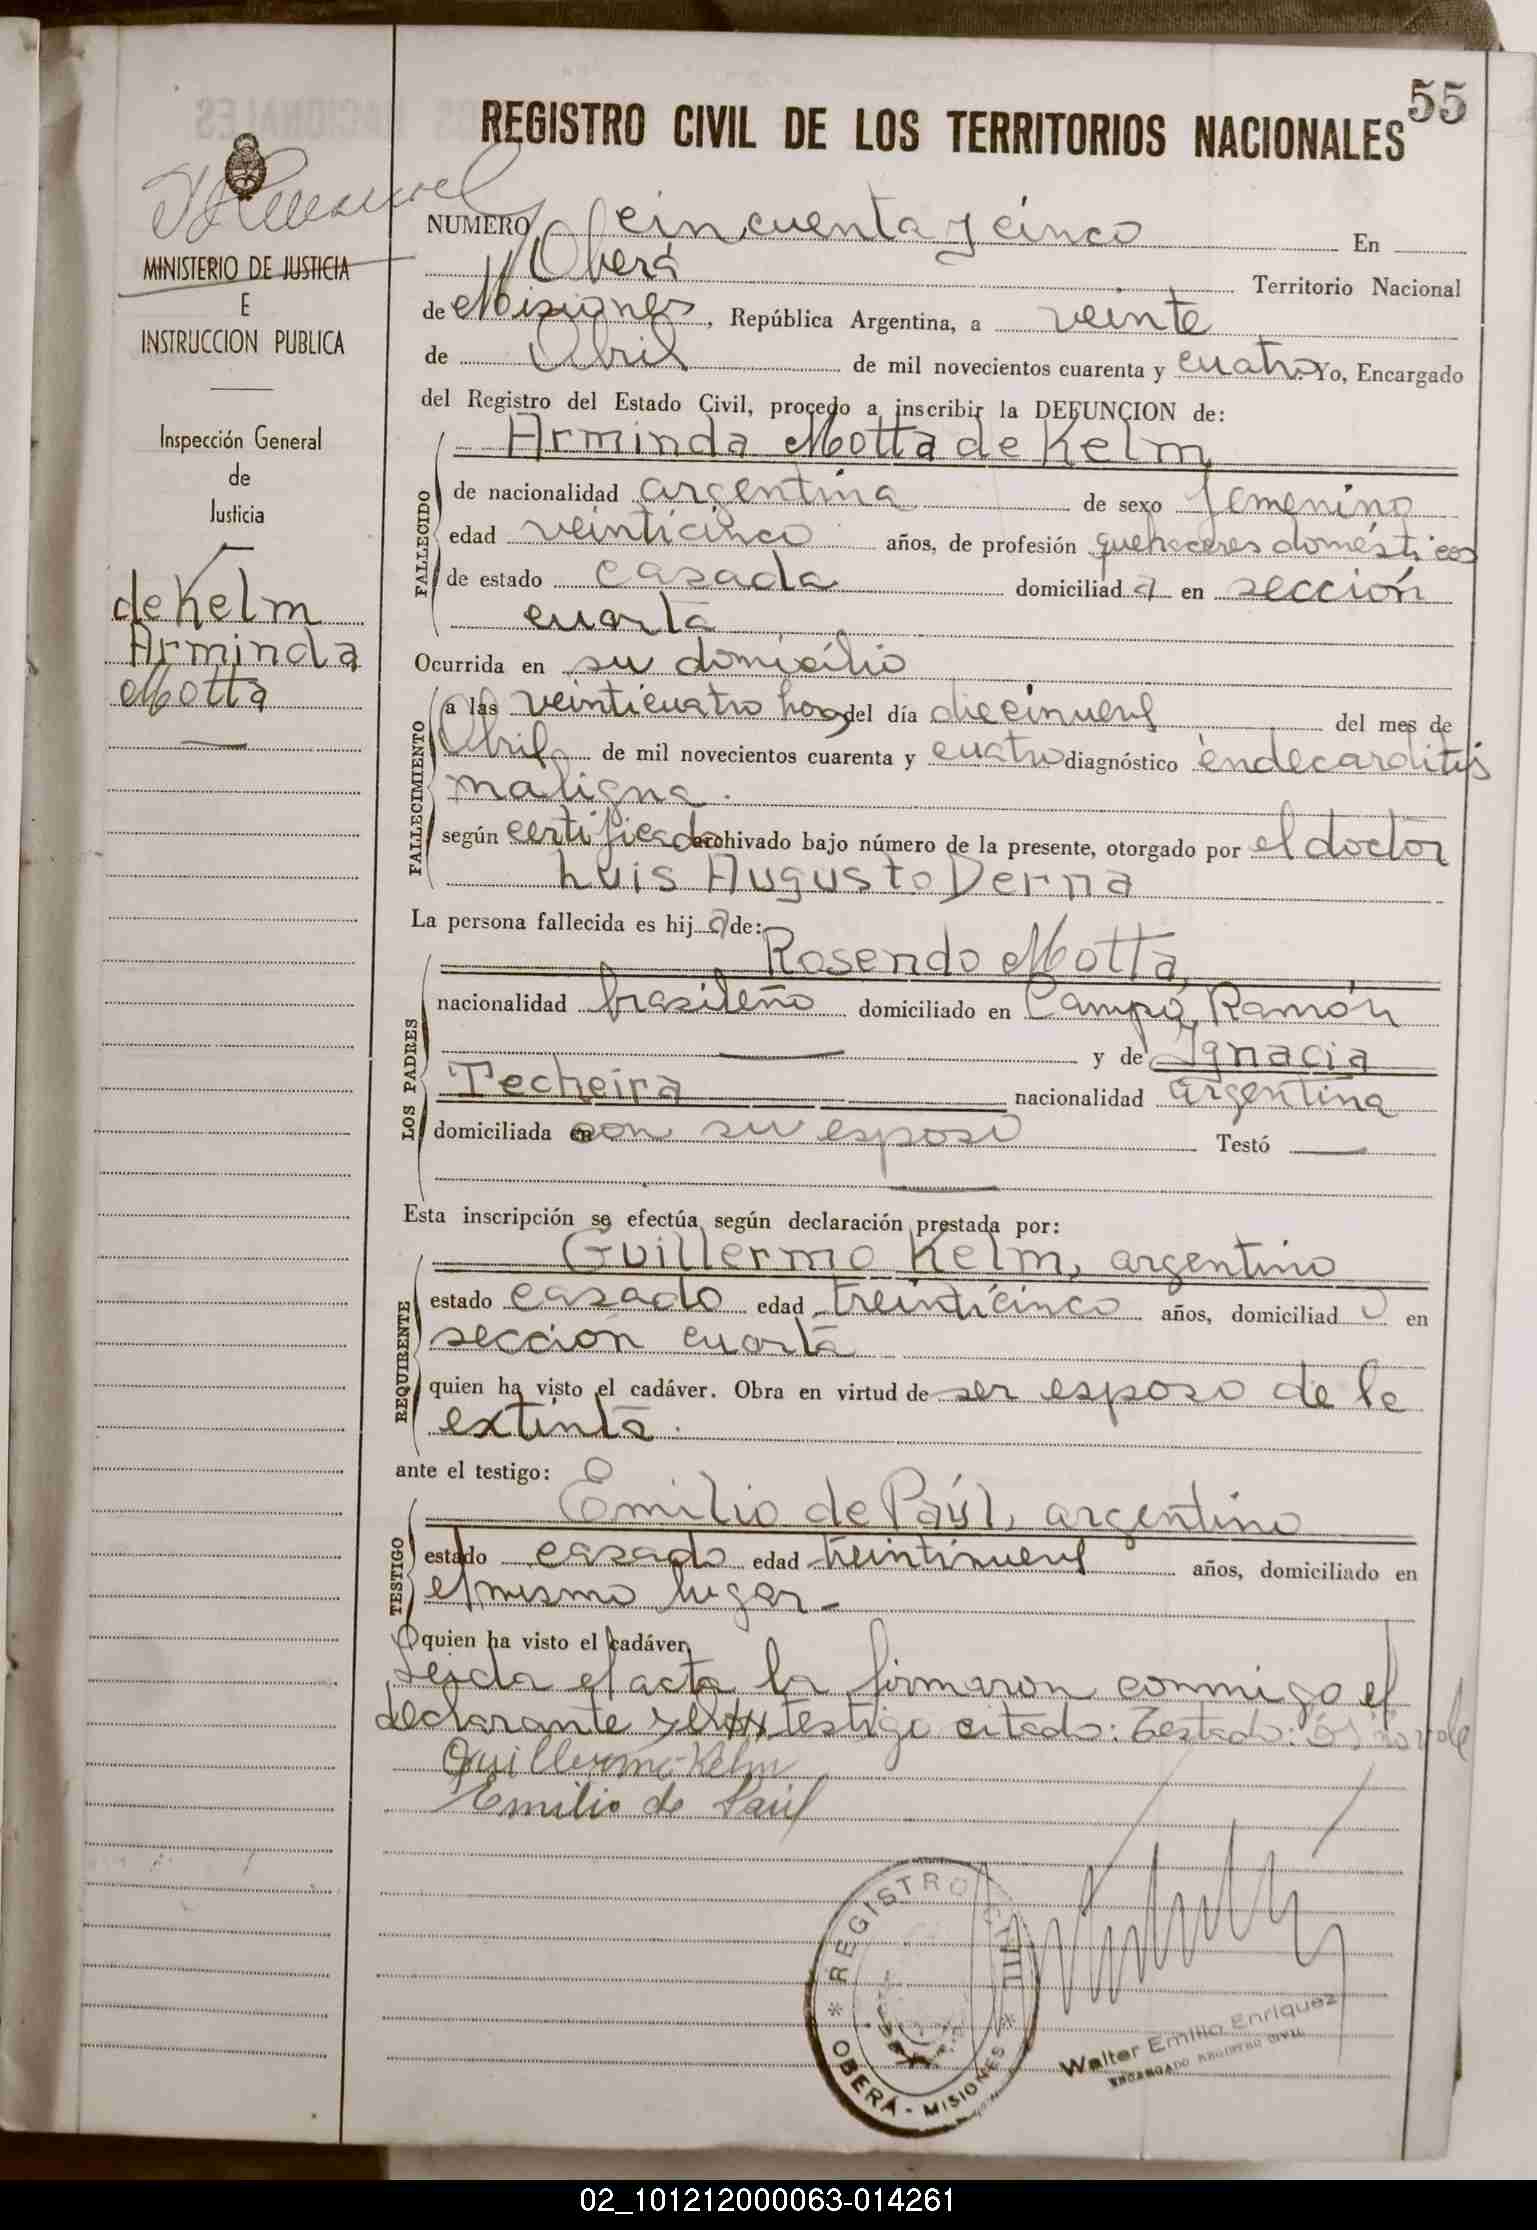 55
REGISTRO CIVIL DE LOS TERRITORIOS NACIONALES
NUMERO cincuenta y cinco En
Oberá Territorio Nacional
de Misiones, República Argentina, a veinte
de Abril de mil novecientos cuarenta y cuatro. Yo, Encargado
del Registro del Estado Civil, procedo a inscribir la DEFUNCION de:
Arminda Motta de Kelm
FALLECIDO
de nacionalidad argentina de sexo femenino
edad veinticinco años, de profesión quehaceres domésticos
de estado casada domiciliada en sección
cuarta
Ocurrida en su domicilio
FALLECIMIENTO
a las veinticuatro horas del día diecinueve del mes de
Abril de mil novecientos cuarenta y cuatro diagnóstico endecarditis
maligna.
según certificado archivado bajo número de la presente, otorgado por el doctor
Luis Augusto Derna
La persona fallecida es hija de:
LOS PADRES
Rosendo Motta
nacionalidad brasileño domiciliado en Campo Ramón
y de Ignacia
Techeira nacionalidad argentina
domiciliada con su esposo Testó
Esta inscripción se efectúa según declaración prestada por:
REQUIRENTE
Guillermo Kelm, argentino
estado casado edad treinticinco años, domiciliado en
sección cuarta
quien ha visto el cadáver. Obra en virtud de ser esposo de la
extinta.
ante el testigo:
TESTIGO
Emilio de Paúl, argentino
estado casado edad treintinueve años, domiciliado en
el mismo lugar
quien ha visto el cadáver
Leida el acta la firmaron conmigo el
declarante y el testigo citado: Testado:
Guillermo Kelm
Emilio de Paúl
REGISTRO CIVIL
* OBERÁ - MISIONES *
Walter Emilio Enriquez
ENCARGADO REGISTRO CIVIL
MINISTERIO DE JUSTICIA
E
INSTRUCCION PUBLICA
Inspección General
de
Justicia
de Kelm
Arminda
Motta
02_101212000063-014261